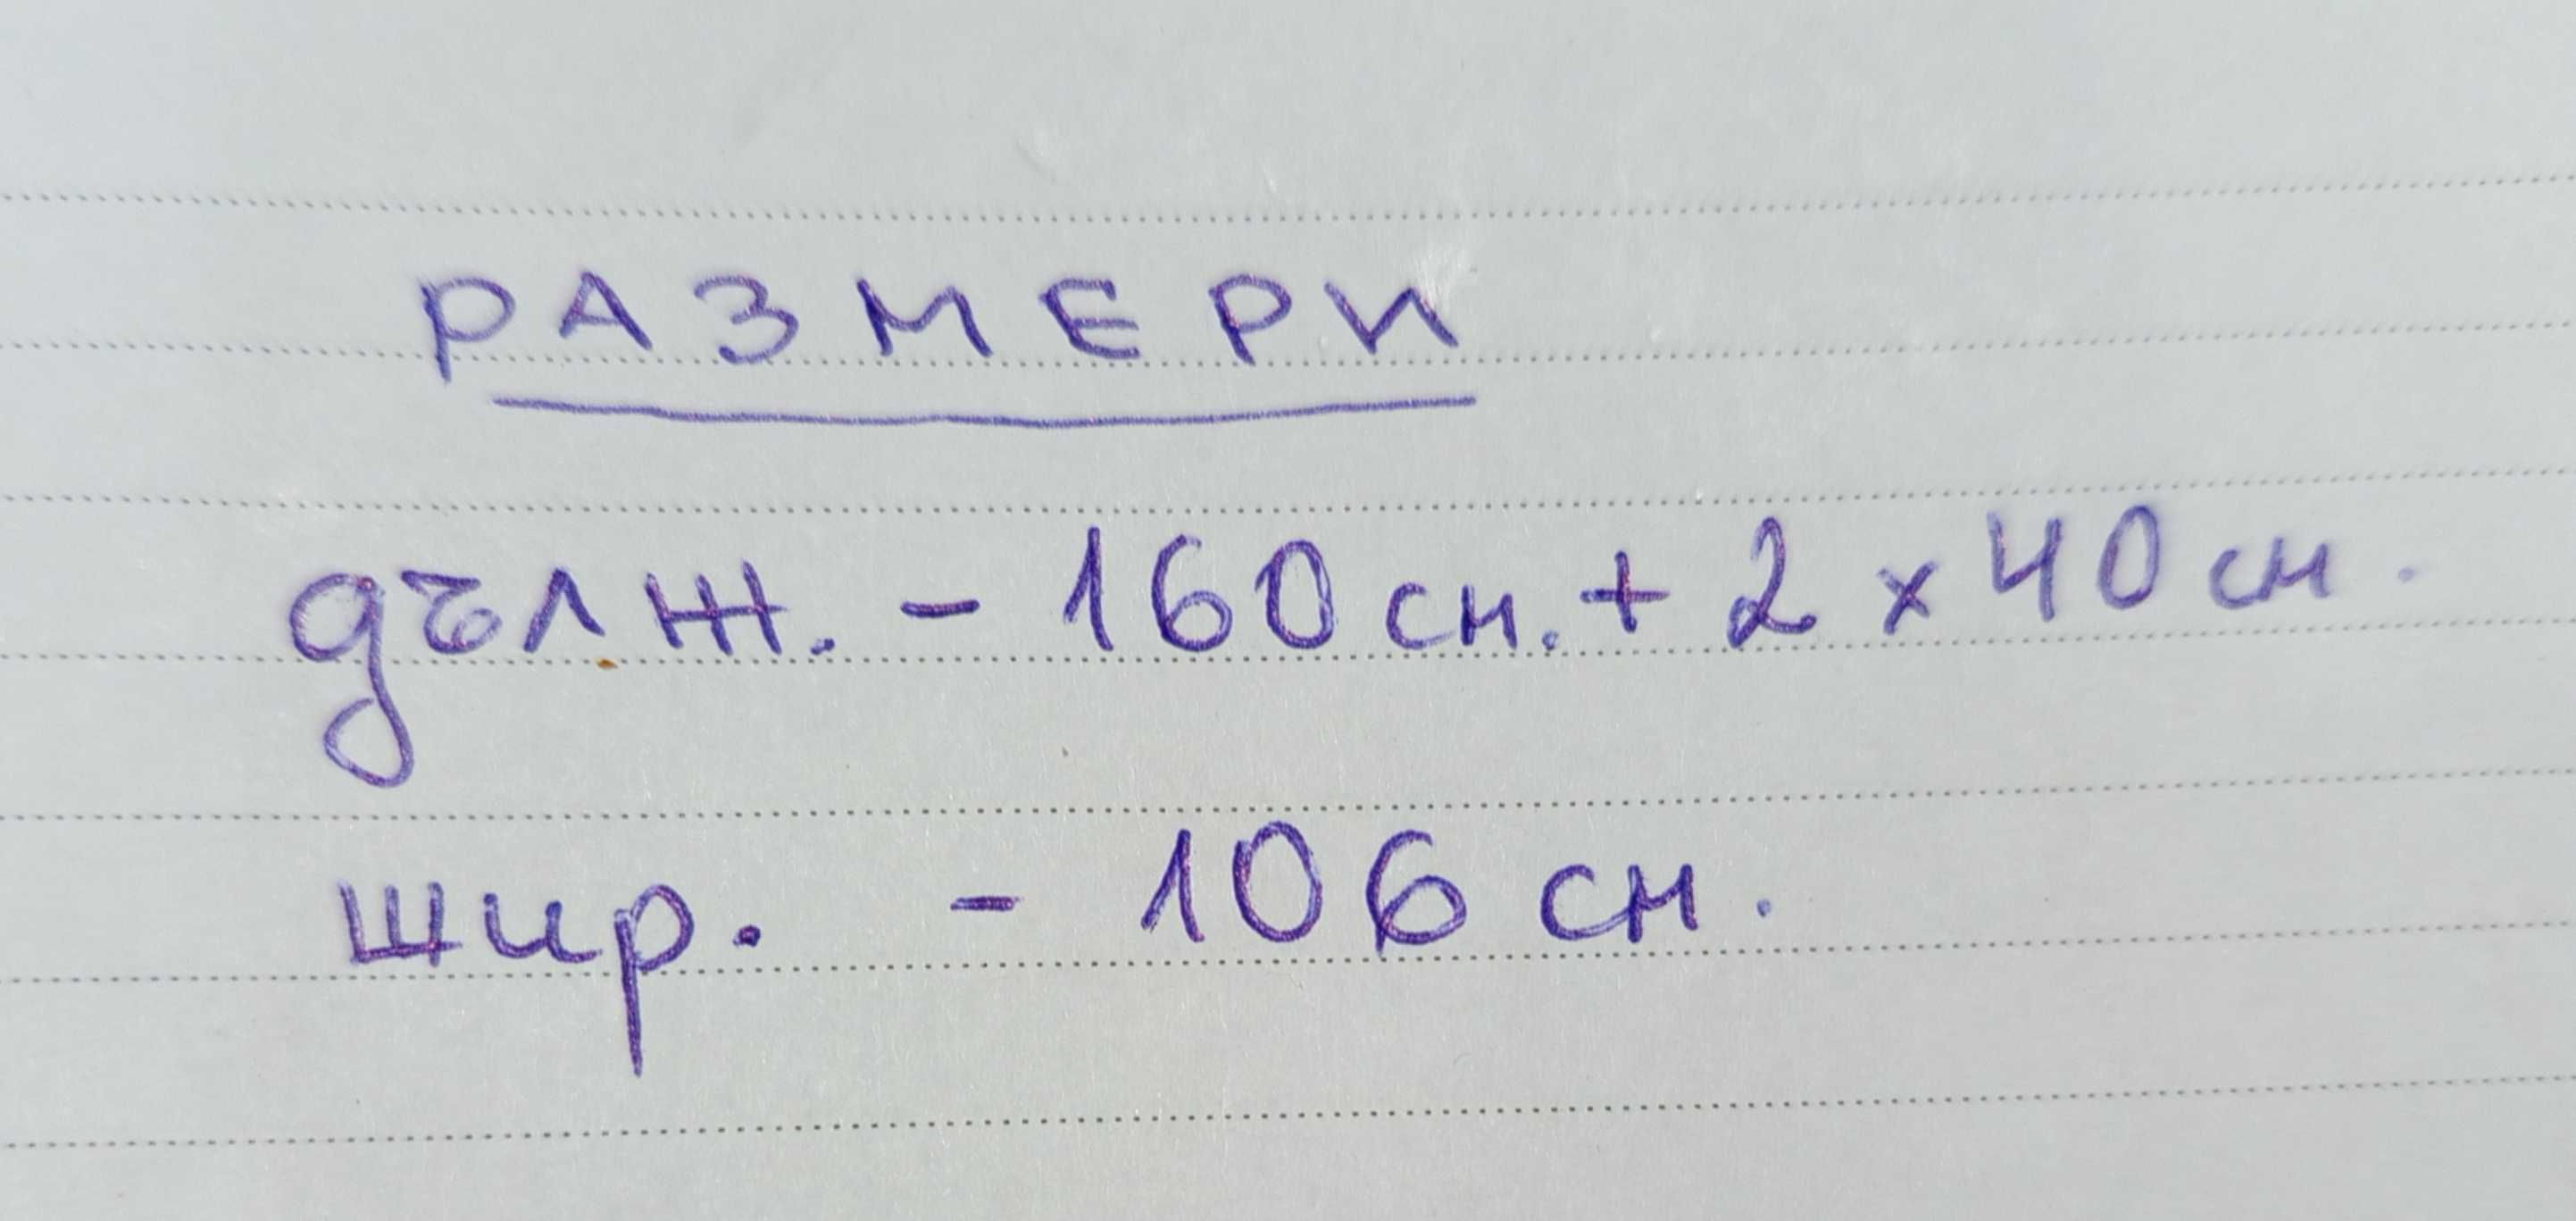 РАЗМЕРИ
дълж. - 160 см. + 2 x 40 см.
шир. - 106 см.